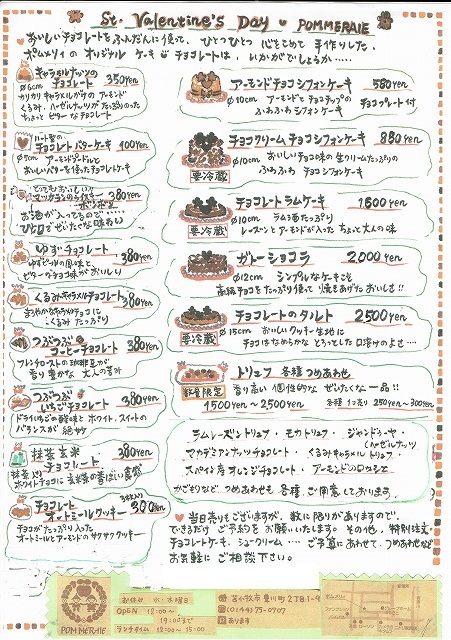 St. Valentine's Day POMMERAIE
おいしいチョコレートをふんだんに使って、ひとつひとつ 心をこめて 手作りした、
ポムメリィの オリジナル ケーキ チョコレートは、いかがでしょうか……
キャラメルナッツの
チョコレート 350yen
φ6cm
カリカリ キャラメルがけの アーモンド
くるみ、ヘーゼルナッツが たっぷりのった
ちょっと ビターな チョコレート
ハート型の
チョコレートバターケーキ 100yen
φ5cm アーモンドプードルと
おいしいバターを使ったチョコレートケーキ
とってもおいしい!
マッカランの
ボンボン 380yen
お酒が入ってるので……
ひと口でぜいたくな味わい
ゆずチョコレート 380yen
ゆずピールの風味と
ビターなチョコ味がおいしい
くるみキャラメルチョコレート 380yen
まろやかキャラメルチョコに
くるみ たっぷり
つぶつぶ
コーヒーチョコレート 380yen
フレンチローストの珈琲豆が
香り豊かな 大人の苦み
つぶつぶ
いちごチョコレート 380yen
ドライいちごの酸味と ホワイト、スイートの
バランスが 絶妙
抹茶玄米
チョコレート 380yen
抹茶入り
ホワイトチョコに 玄米茶の香ばしい食感
チョコレート
オートミールクッキー 300yen
チョコがたっぷり入った
オートミールとアーモンドのサクサククッキー
アーモンドチョコシフォンケーキ 580yen
φ10cm アーモンドと チョコチップの チョコプレート付
ふわふわ シフォンケーキ
チョコクリームチョコシフォンケーキ 880yen
φ10cm おいしいチョコ味の 生クリームたっぷりの
ふわふわ チョコシフォンケーキ
要冷蔵
チョコレートラムケーキ 1600yen
φ10cm ラム酒たっぷり
レーズンと アーモンドが入った ちょっと大人の味
要冷蔵
ガトーショコラ 2,000yen
φ12cm シンプルなケーキこそ
高級チョコをたっぷり使って 焼きあげたおいしさ!!
チョコレートのタルト 2500yen
φ15cm おいしいクッキー生地に
チョコはなめらかな とろっとした口溶けのよさ……
要冷蔵
トリュフ 各種つめあわせ
香り高い個性的な ぜいたくな一品!!
数量限定
1500yen〜2500yen 各種1つ売り 250yen〜300yen
ラムレーズントリュフ・モカトリュフ・ジャンドゥーヤ・
(ヘーゼルナッツ)
マカデミアンナッツチョコレート・くるみキャラメルトリュフ・
スペイン産オレンジチョコレート・アーモンドのロッシェ
かごもりなど、つめあわせも 各種、ご用意しております。
当日売りもございますが、数に限りがありますので、
できるだけ ご予約を お願いいたします。その他、特別注文・
チョコレートケーキ、シュークリーム…… ご予算にあわせて、つめあわせなど
お気軽に ご相談 下さい。
POMMERAIE
お休み 水・木曜日
OPEN 12:00〜
19:00まで
ランチタイム 12:00〜15:00
苫小牧市豊川町2丁目1-9
(0144)75-0707
P あります